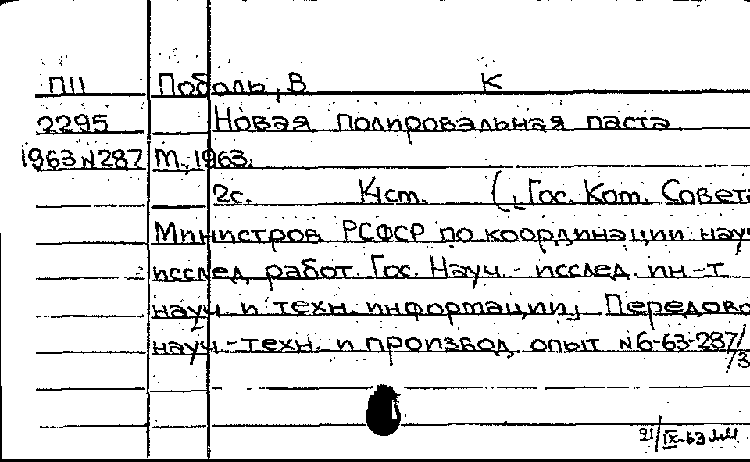 П11 Поболь, В К
2295 Новая полировальная паста
1963 N287 М., 1963.
2с. (Гос. Ком. Совета
Министров РСФСР по координации науч
исслед. работ. Гос. Науч.- исслед. ин-т
науч. и техн. информации; Передово
науч.-техн. и производ. опыт N6-63-287/
/3
21/IX-63